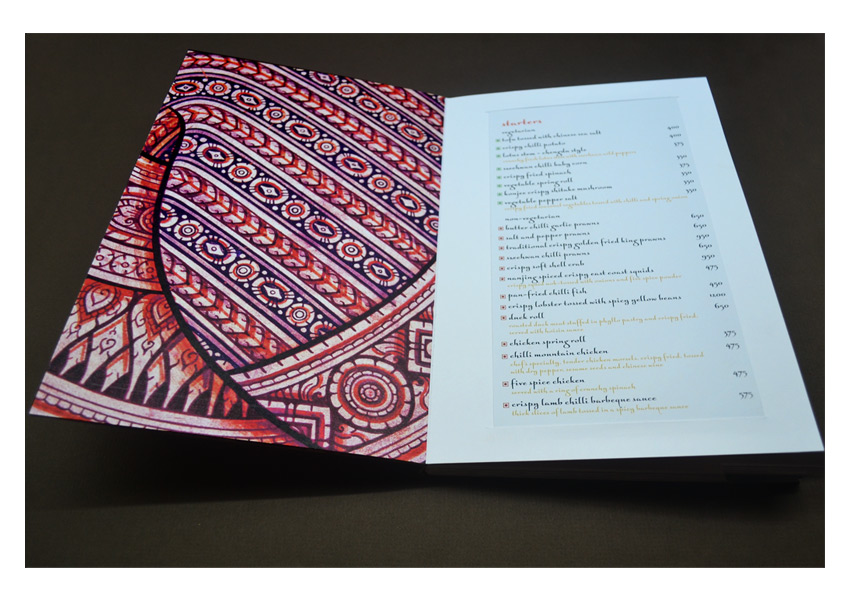 starters
vegetarian
tofu tossed with chinese sea salt 400
crispy chilli potato 400
lotus stem - chengdu style 375
szechuan chilli baby corn 350
crispy fried spinach 375
vegetable spring roll 350
konjee crispy shitake mushroom 350
vegetable pepper salt 350
non-vegetarian
butter chilli garlic prawns 650
salt and pepper prawns 650
traditional crispy golden fried king prawns 950
szechuan chilli prawns 650
crispy soft shell crab 950
nanjing spiced crispy east coast squids 475
pan-fried chilli fish 450
crispy lobster tossed with spicy yellow beans 1200
duck roll 650
roasted duck meat stuffed in phyllo pastry and crispy fried
served with hoisin sauce
chicken spring roll 375
chilli mountain chicken 475
chef's specialty: tender chicken morsels, crispy fried, tossed
with dry pepper, sesame seeds and chinese wine
five spice chicken 475
served with a ring of crunchy spinach
crispy lamb chilli barbeque sauce 575
thick slices of lamb tossed in a spicy barbeque sauce